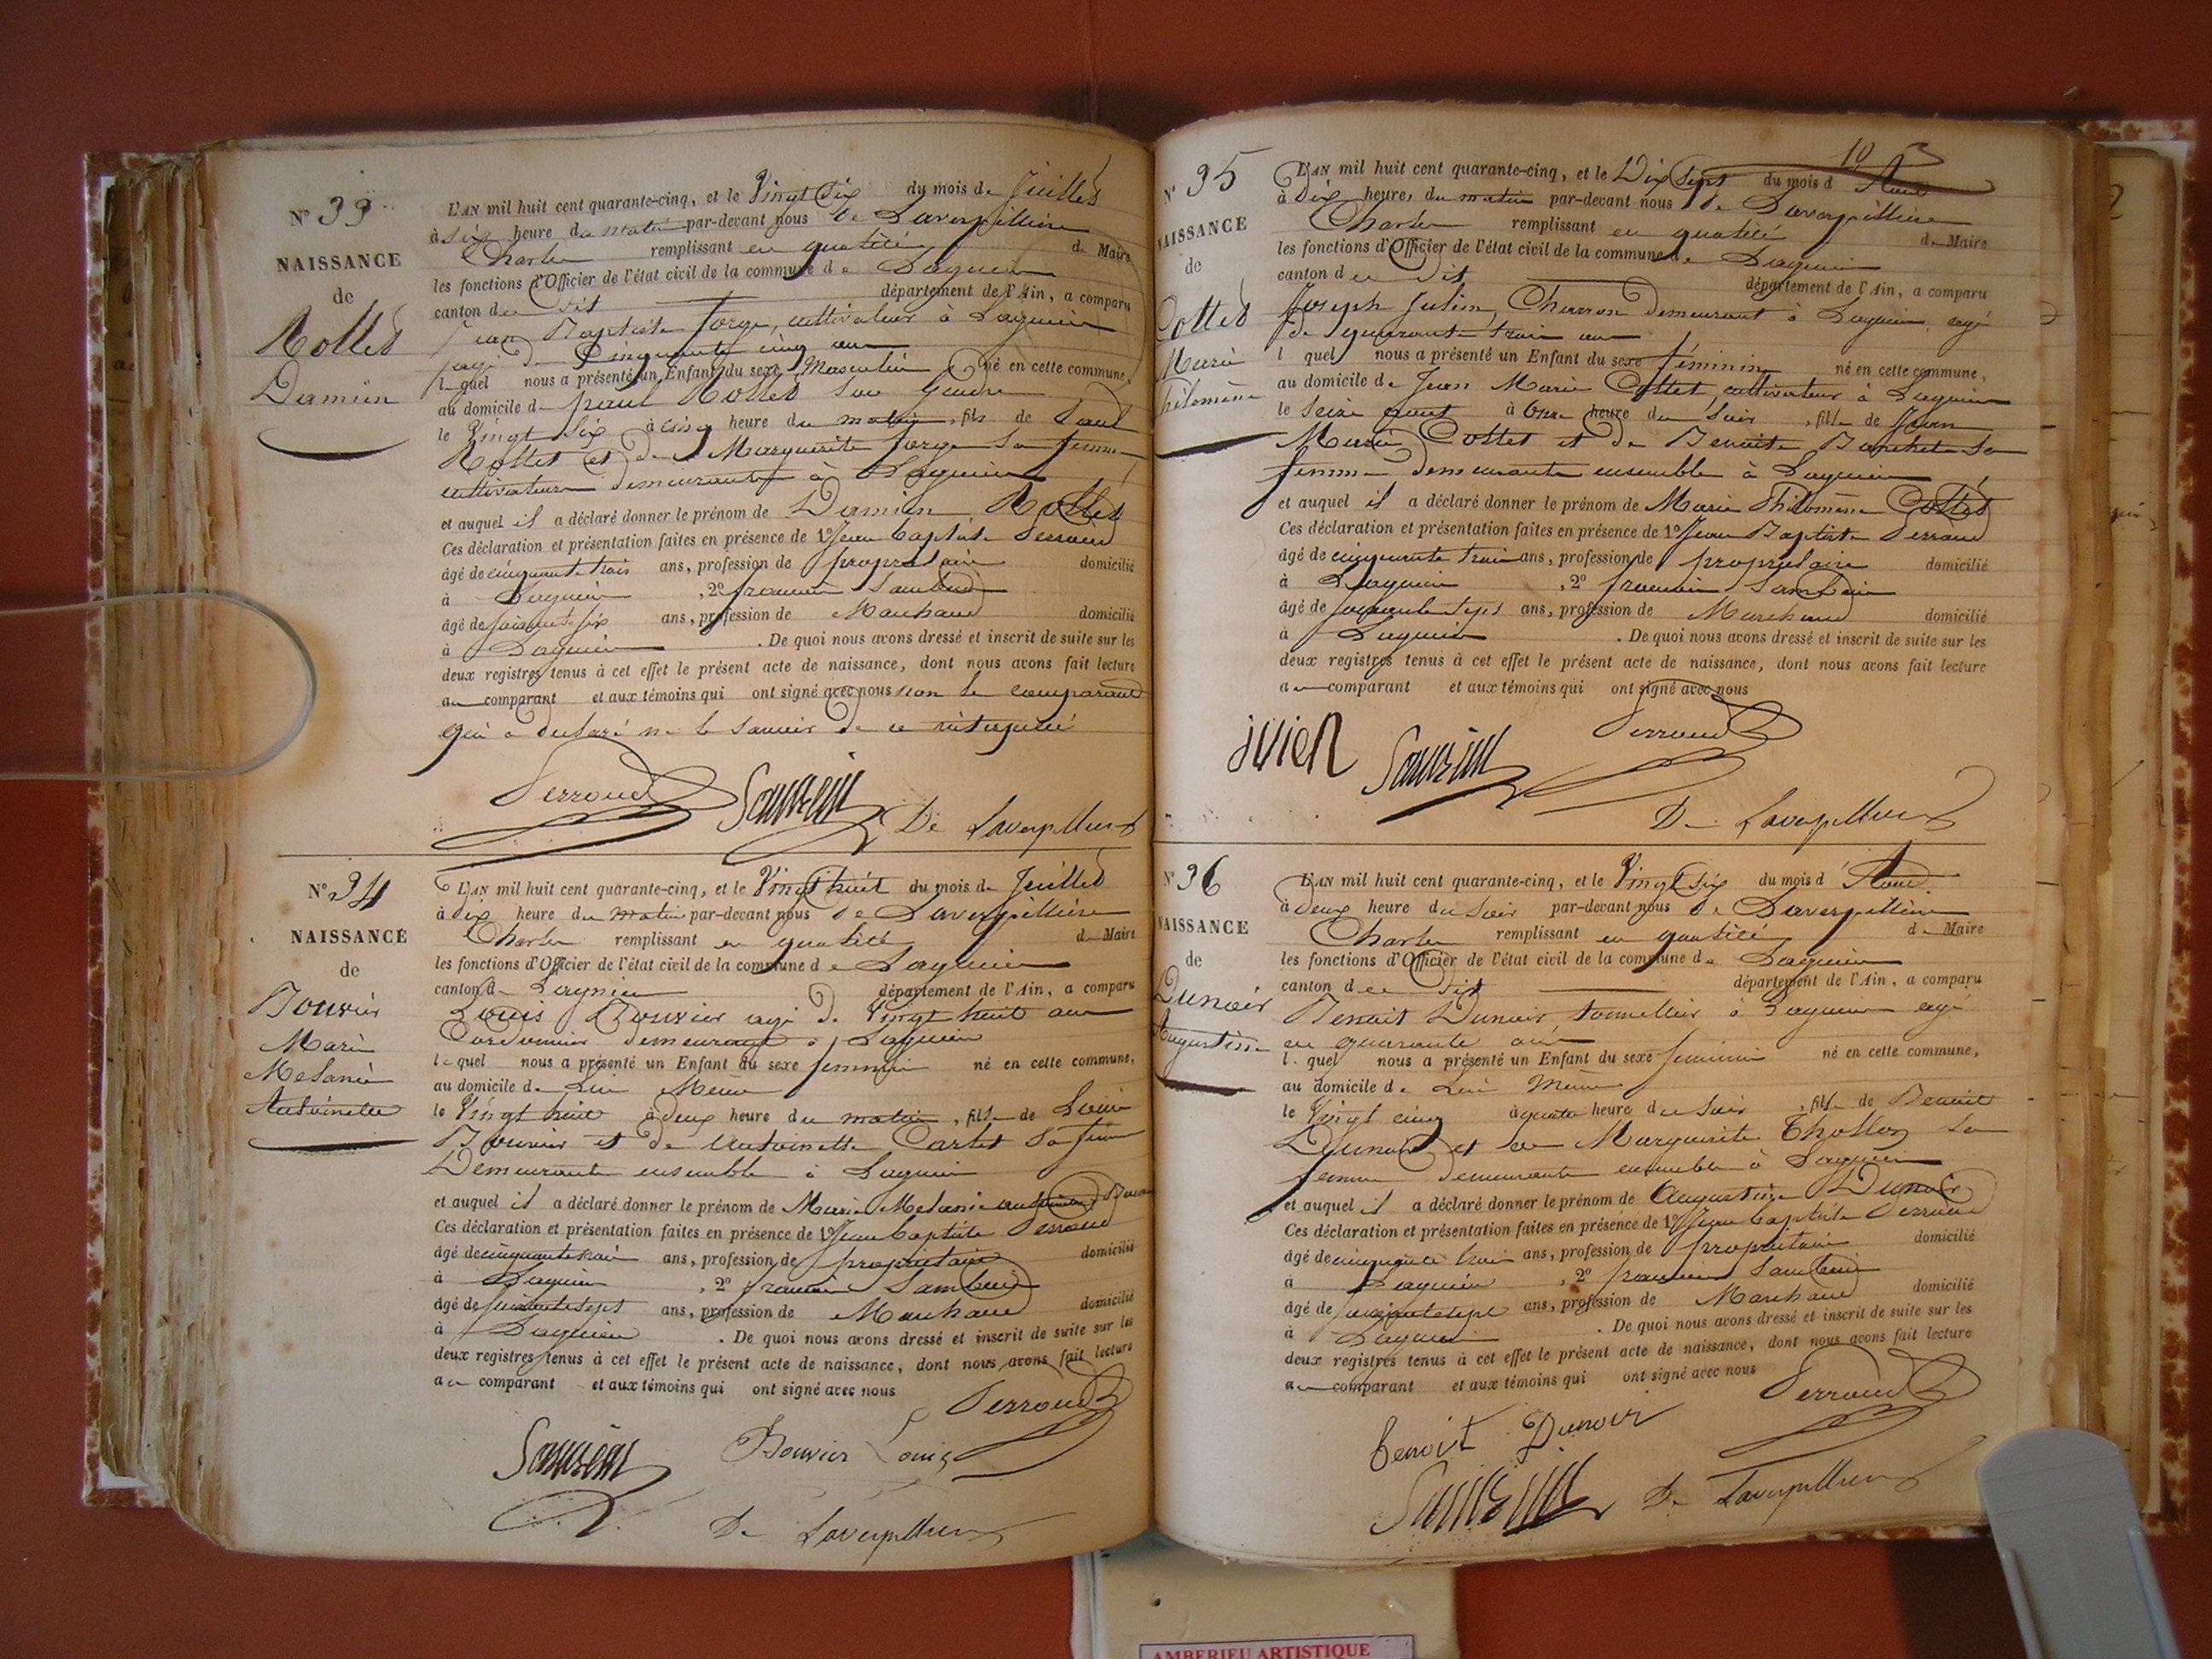 N° 33
NAISSANCE
de
Rollet
Damien
L'AN mil huit cent quarante-cinq, et le Vingt Six du mois de Juillet
à six heure du matin par-devant nous De Laverpillière
Charles remplissant en qualité de Maire
les fonctions d'Officier de l'état civil de la commune de Lagnieu
canton du dit département de l'Ain, a comparu
Jean Baptiste Forge, cultivateur à Lagnieu
agé de Cinquante cinq ans
lequel nous a présenté un Enfant du sexe Masculin né en cette commune,
au domicile de paul Rollet son Gendre
le Vingt Six à cinq heure du matin, fils de Paul
Rollet et de Marguerite forge sa femme
cultivateurs demeurants à Lagnieu
et auquel il a déclaré donner le prénom de Damien Rollet
Ces déclaration et présentation faites en présence de 1° Jean baptiste Perroud
âgé de cinquante trois ans, profession de propriétaire domicilié
à Lagnieu, 2° francois
âgé de soixante six ans, profession de Marchand domicilié
à Lagnieu. De quoi nous avons dressé et inscrit de suite sur les
deux registres tenus à cet effet le présent acte de naissance, dont nous avons fait lecture
au comparant et aux témoins qui ont signé avec nous non le comparant
qui a declaré ne le savoir de ce interpellé
Perroud
De Laverpilliere
N° 34
NAISSANCE
de
Bouvier
Marie
Melanie
Antoinette
L'AN mil huit cent quarante-cinq, et le Vingt huit du mois de Juillet
à dix heure du matin par-devant nous De Laverpillière
Charles remplissant en qualité de Maire
les fonctions d'Officier de l'état civil de la commune de Lagnieu
canton de Lagnieu département de l'Ain, a comparu
Louis Bouvier agé de Vingt huit ans
Cordonnier demeurant à Lagnieu
lequel nous a présenté un Enfant du sexe feminin né en cette commune,
au domicile de Lui Meme
le Vingt huit à deux heure du matin, fille de Louis
Bouvier et de Antoinette Cartet sa femme
Demeurants ensemble à Lagnieu
et auquel il a déclaré donner le prénom de Marie Melanie antoinette
Ces déclaration et présentation faites en présence de 1° Jean baptiste Perroud
âgé de cinquante trois ans, profession de propriétaire domicilié
à Lagnieu, 2° francois
âgé de soixante sept ans, profession de Marchand domicilié
à Lagnieu. De quoi nous avons dressé et inscrit de suite sur les
deux registres tenus à cet effet le présent acte de naissance, dont nous avons fait lecture
au comparant et aux témoins qui ont signé avec nous
Perroud
Bouvier Louis
De Laverpilliere
10
N° 35
NAISSANCE
de
Cottet
Marie
Philomène
L'AN mil huit cent quarante-cinq, et le Dix Sept du mois d'Aout
à Dix heure, du matin par-devant nous De Laverpillière
Charles remplissant en qualité de Maire
les fonctions d'Officier de l'état civil de la commune de Lagnieu
canton du dit département de l'Ain, a comparu
Joseph Charron demeurant à Lagnieu, agé
de quarante trois ans
lquel nous a présenté un Enfant du sexe féminin né en cette commune,
au domicile de Jean Marie Cottet, cultivateur à Lagnieu
le Seize aout à onze heure du Soir, fille de Jean
Marie Cottet et de Benoite sa
femme demeurants ensemble à Lagnieu
et auquel il a déclaré donner le prénom de Marie Philomène Cottet
Ces déclaration et présentation faites en présence de 1° Jean Baptiste Perroud
âgé de cinquante trois ans, profession de propriétaire domicilié
à Lagnieu, 2° francois
âgé de soixante sept ans, profession de Marchand domicilié
à Lagnieu. De quoi nous avons dressé et inscrit de suite sur les
deux registres tenus à cet effet le présent acte de naissance, dont nous avons fait lecture
au comparant et aux témoins qui ont signé avec nous
Perroud
De Laverpilliere
N° 36
NAISSANCE
de
Dunoir
Augustine
L'AN mil huit cent quarante-cinq, et le Vingt Six du mois d'Aout
à deux heure du Soir par-devant nous De Laverpillière
Charles remplissant en qualité de Maire
les fonctions d'Officier de l'état civil de la commune de Lagnieu
canton du dit département de l'Ain, a comparu
Benoit Dunoir, tonnellier à Lagnieu agé
de quarante ans
l.quel nous a présenté un Enfant du sexe feminin né en cette commune,
au domicile de Lui Meme
le Vingt cinq à quatre heure du Soir, fille de Benoit
Dunoir et de Marguerite Thollon sa
femme demeurants ensemble à Lagnieu
et auquel il a déclaré donner le prénom de Augustine Dunoir
Ces déclaration et présentation faites en présence de 1° Jean baptiste Perroud
âgé de cinquante trois ans, profession de propriétaire domicilié
à Lagnieu, 2° francois
âgé de soixante sept ans, profession de Marchand domicilié
à Lagnieu. De quoi nous avons dressé et inscrit de suite sur les
deux registres tenus à cet effet le présent acte de naissance, dont nous avons fait lecture
au comparant et aux témoins qui ont signé avec nous
Perroud
benoit Dunoir
De Laverpilliere
AMBERIEU ARTISTIQUE